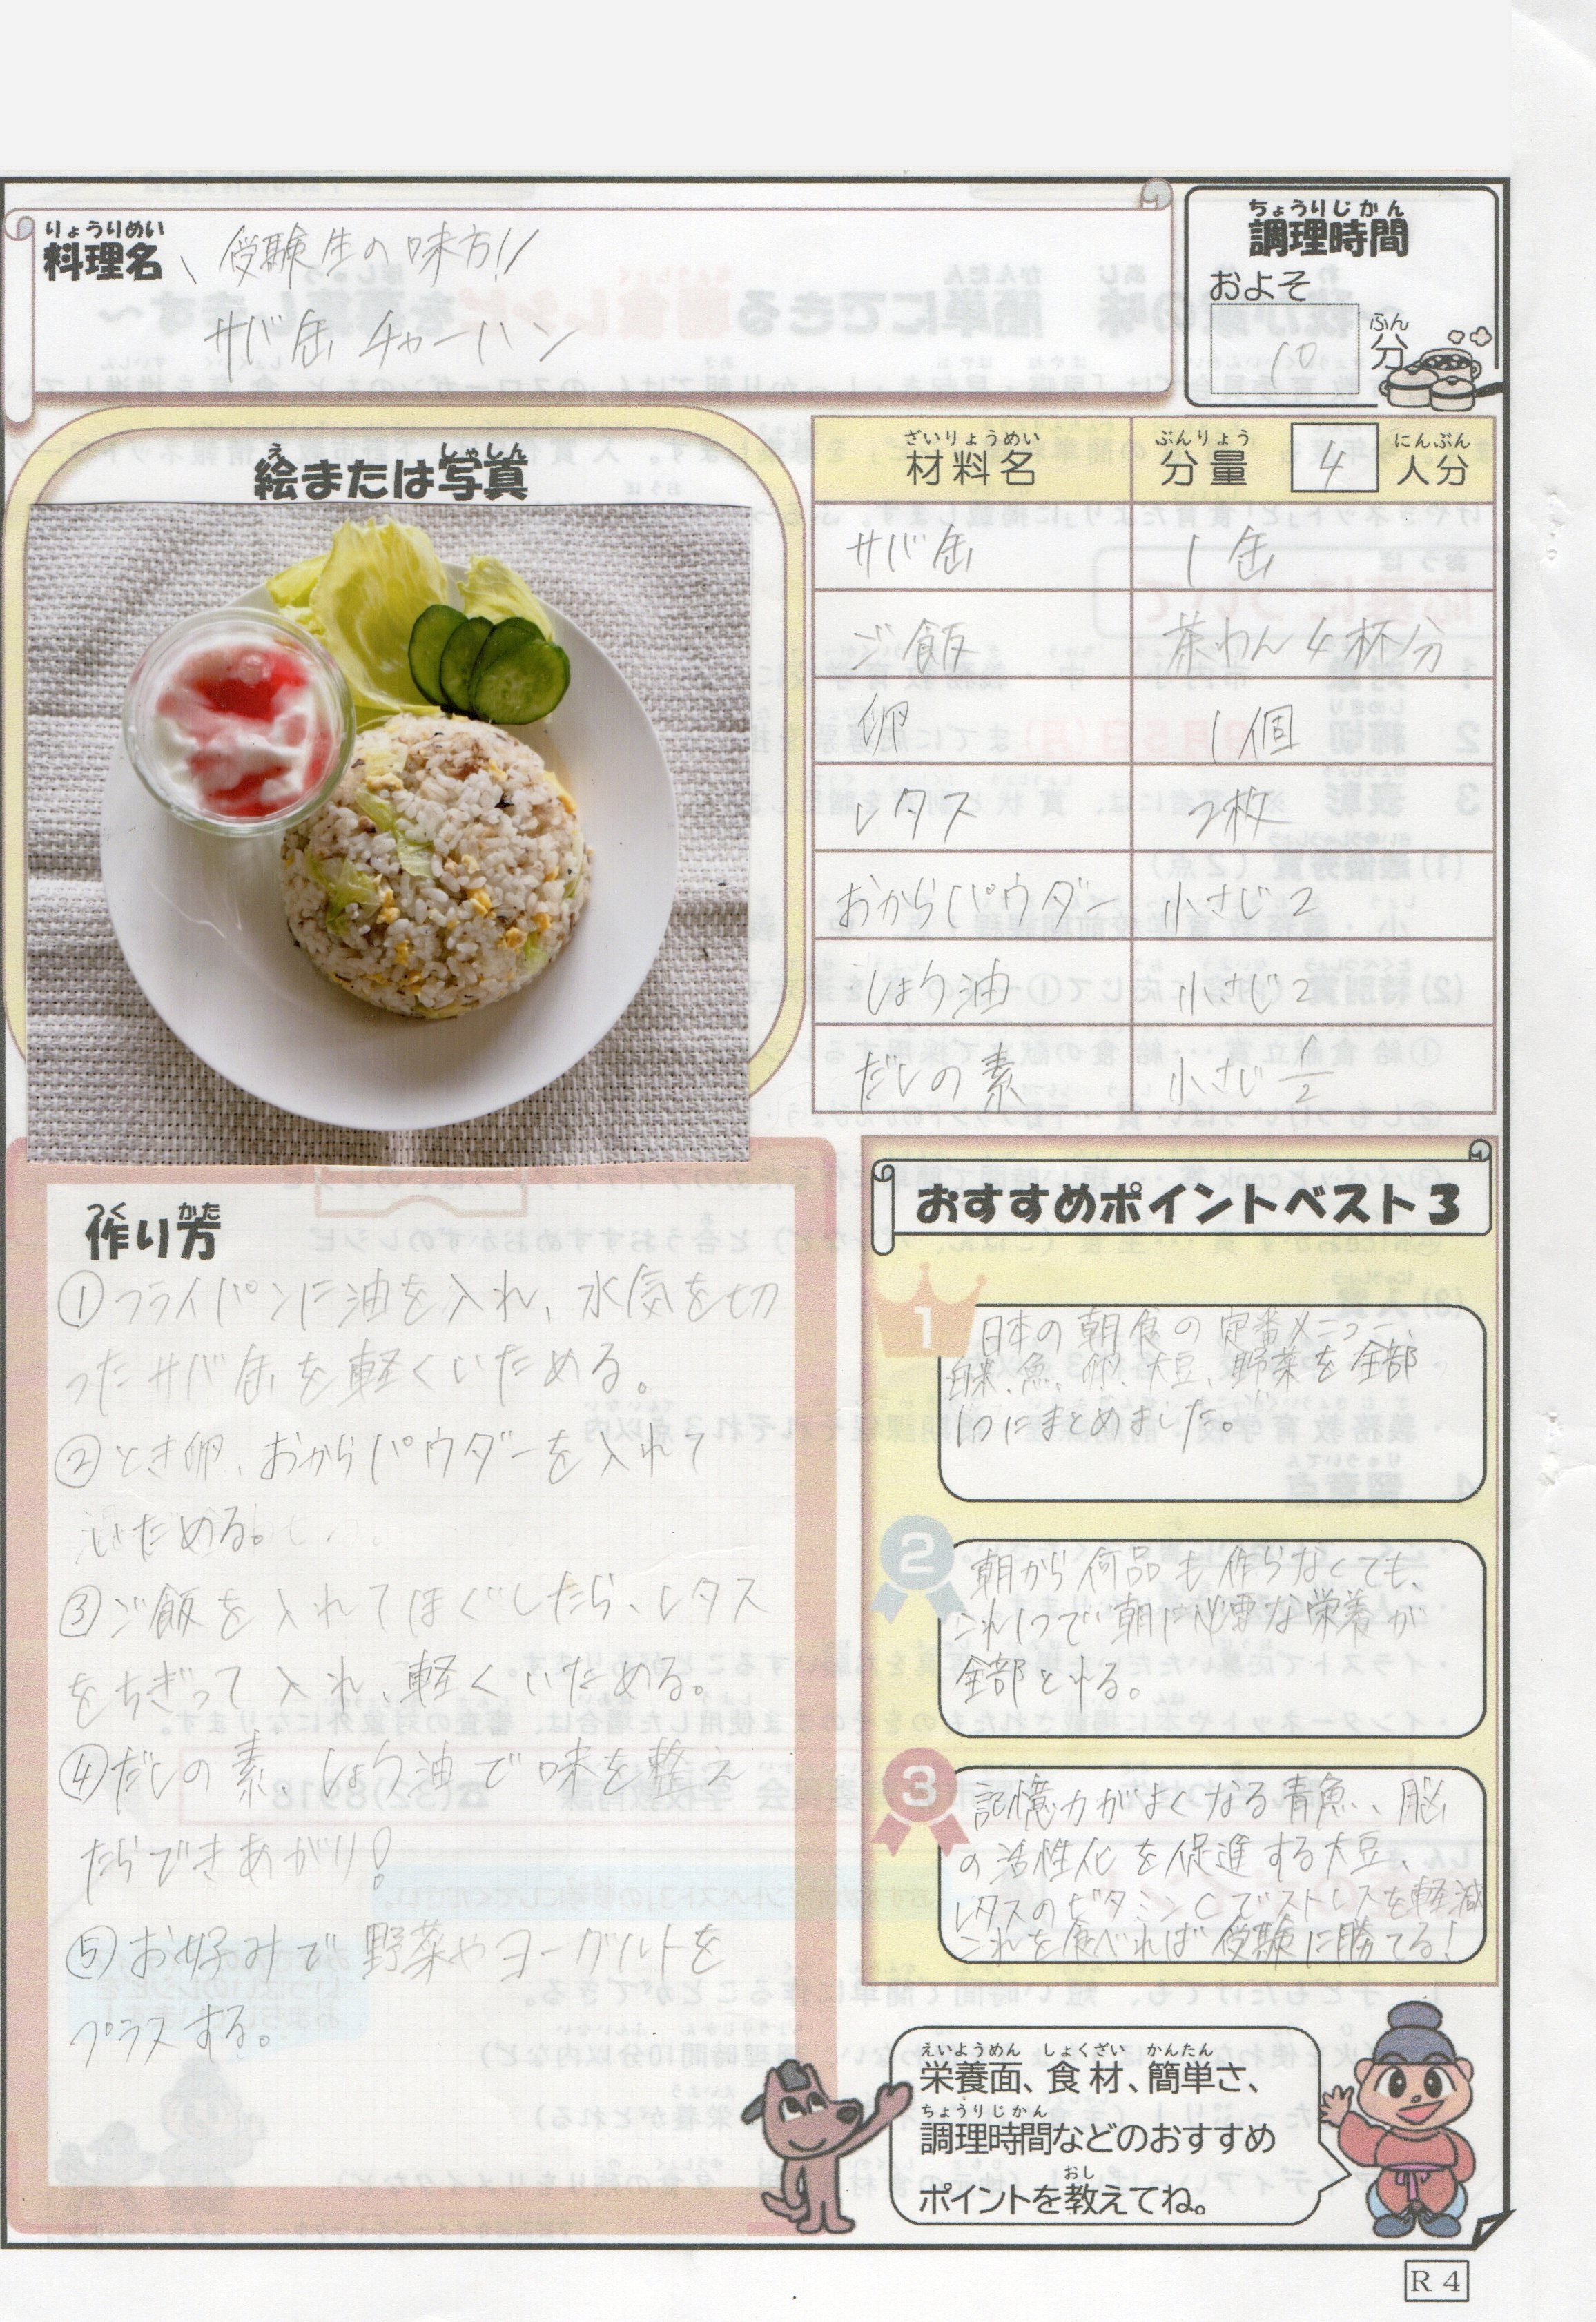 りょうりめい
料理名
受験生の味方!!
サバ缶チャーハン
ちょうりじかん
調理時間
およそ
10
ふん
分
え しゃしん
絵または写真
ざいりょうめい
材料名
ぶんりょう にんぶん
分量 4 人分
サバ缶 1缶
ご飯 茶わん4杯分
卵 1個
レタス 2枚
おからパウダー 小さじ2
しょう油 小さじ2
だしの素 小さじ1/2
つく かた
作り方
①フライパンに油を入れ、水気を切
ったサバ缶を軽くいためる。
②とき卵、おからパウダーを入れて
いためる。
③ご飯を入れてほぐしたら、レタス
をちぎって入れ、軽くいためる。
④だしの素、しょう油で味を整え
たらできあがり!
⑤お好みで野菜やヨーグルトを
プラスする。
おすすめポイントベスト3
1
日本の朝食の定番メニュー、
白米、魚、卵、大豆、野菜を全部
1つにまとめました。
2
朝から何品も作らなくても、
これ1つで朝に必要な栄養が
全部とれる。
3
記憶力がよくなる青魚、脳
の活性化を促進する大豆、
レタスのビタミンCでストレスを軽減
これを食べれば受験に勝てる!
えいようめん しょくざい かんたん
栄養面、食材、簡単さ、
ちょうりじかん
調理時間などのおすすめ
おし
ポイントを教えてね。
R4